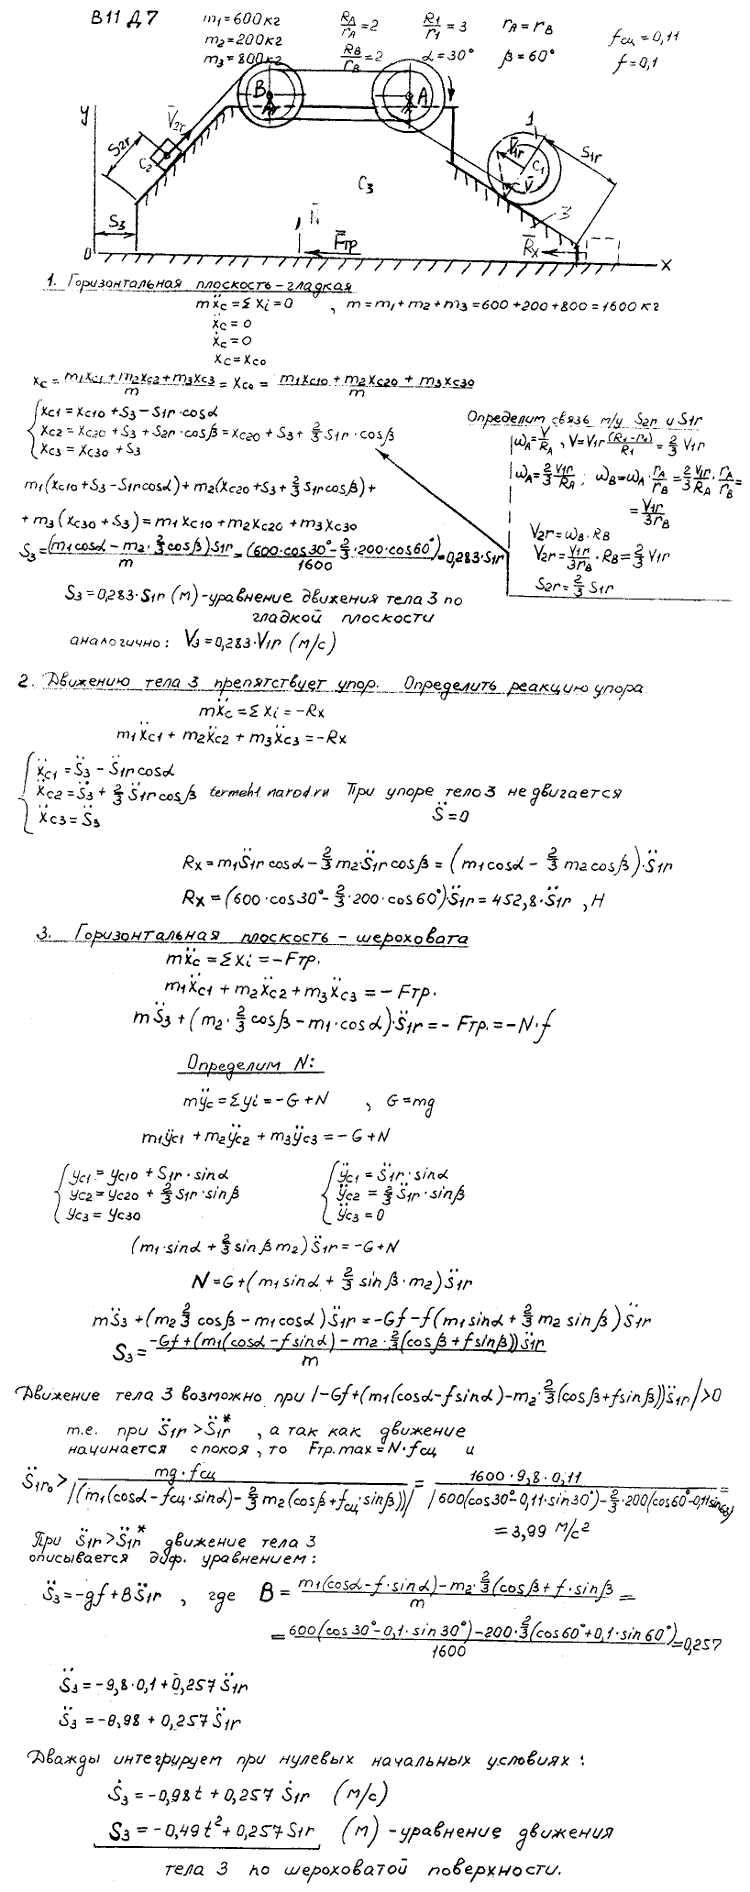 В11 Д7
m₁=600кг
m₂=200кг
m₃=800кг
R_A/r_A=2 R₁/r₁=3 r_A=r_B
R_B/r_B=2 α=30° β=60°
f_сц=0,11
f=0,1
y
B
A
V̄₂r
S₂r
C₂
S₃
C₃
1
V̄₁r
C₁
S₁r
V̄
3
N̄
F̄тр
R̄x
0
x
1. Горизонтальная плоскость-гладкая
mẍc=Σxi=0 , m=m₁+m₂+m₃=600+200+800=1600 кг
ẍc=0
ẋc=0
xc=xc₀
xc=(m₁xc₁+m₂xc₂+m₃xc₃)/m=xc₀=(m₁xc₁₀+m₂xc₂₀+m₃xc₃₀)/m
xc₁=xc₁₀+S₃-S₁r·cosα
xc₂=xc₂₀+S₃+S₂r·cosβ=xc₂₀+S₃+2/3 S₁r·cosβ
xc₃=xc₃₀+S₃
Определим связь м/у S₂r и S₁r
ω_A=V/R_A, V=V₁r(R₁-r₁)/R₁=2/3 V₁r
ω_A=2/3 V₁r/R_A; ω_B=ω_A·r_A/r_B=2/3 V₁r/R_A·r_A/r_B=
=V₁r/3r_B
V₂r=ω_B·R_B
V₂r=V₁r/3r_B·R_B=2/3 V₁r
S₂r=2/3 S₁r
m₁(xc₁₀+S₃-S₁rcosα)+m₂(xc₂₀+S₃+2/3 S₁rcosβ)+
+m₃(xc₃₀+S₃)=m₁xc₁₀+m₂xc₂₀+m₃xc₃₀
S₃=(m₁cosα-m₂·2/3cosβ)S₁r/m=(600·cos30°-2/3·200·cos60°)/1600=0,283·S₁r
S₃=0,283·S₁r (м)-уравнение движения тела 3 по
гладкой плоскости
аналогично: V₃=0,283·V₁r (м/с)
2. Движению тела 3 препятствует упор. Определить реакцию упора
mẍc=Σxi=-Rx
m₁ẍc₁+m₂ẍc₂+m₃ẍc₃=-Rx
ẍc₁=S̈₃-S̈₁rcosα
ẍc₂=S̈₃+2/3 S̈₁rcosβ termeh1.narod.ru При упоре тело 3 не двигается
ẍc₃=S̈₃
S̈=0
Rx=m₁S̈₁rcosα-2/3 m₂·S̈₁rcosβ=(m₁cosα-2/3 m₂cosβ)·S̈₁r
Rx=(600·cos30°-2/3·200·cos60°)·S̈₁r=452,8·S̈₁r , Н
3. Горизонтальная плоскость-шероховата
mẍc=Σxi=-Fтр.
m₁ẍc₁+m₂ẍc₂+m₃ẍc₃=-Fтр.
mS̈₃+(m₂·2/3cosβ-m₁·cosα)·S̈₁r=-Fтр.=-N·f
Определим N:
mÿc=Σyi=-G+N , G=mg
m₁ÿc₁+m₂ÿc₂+m₃ÿc₃=-G+N
yc₁=yc₁₀+S₁r·sinα ÿc₁=S̈₁r·sinα
yc₂=yc₂₀+2/3 S₁r·sinβ ÿc₂=2/3 S̈₁r·sinβ
yc₃=yc₃₀ ÿc₃=0
(m₁·sinα+2/3 sinβ m₂)S̈₁r=-G+N
N=G+(m₁sinα+2/3 sinβ·m₂)S̈₁r
mS̈₃+(m₂ 2/3 cosβ-m₁cosα)S̈₁r=-Gf-f(m₁sinα+2/3 m₂ sinβ)S̈₁r
S₃=(-Gf+(m₁(cosα-fsinα)-m₂·2/3(cosβ+fsinβ))S̈₁r)/m
Движение тела 3 возможно при |-Gf+(m₁(cosα-fsinα)-m₂·2/3(cosβ+fsinβ))S̈₁r|>0
т.е. при S̈₁r>S̈₁r*, а так как движение
начинается с покоя, то Fтр.max=N·fсц и
S̈₁r₀>mg·fсц/|(m₁(cosα-fсц·sinα)-2/3 m₂(cosβ+fсц·sinβ))|=1600·9,8·0,11/|600(cos30°-0,11·sin30°)-2/3·200(cos60°-0,11sin60)|=
=3,99 м/с²
При S̈₁r>S̈₁r* движение тела 3
описывается диф. уравнением:
S̈₃=-gf+BS̈₁r , где B=(m₁(cosα-f·sinα)-m₂·2/3(cosβ+f·sinβ)/m=
=(600(cos30°-0,1·sin30°)-200·2/3(cos60°+0,1·sin60°)/1600=0,257
S̈₃=-9,8·0,1+0,257 S̈₁r
S̈₃=-0,98+0,257 S̈₁r
Дважды интегрируем при нулевых начальных условиях:
Ṡ₃=-0,98t+0,257 Ṡ₁r (м/с)
S₃=-0,49t²+0,257S₁r (м)-уравнение движения
тела 3 по шероховатой поверхности.